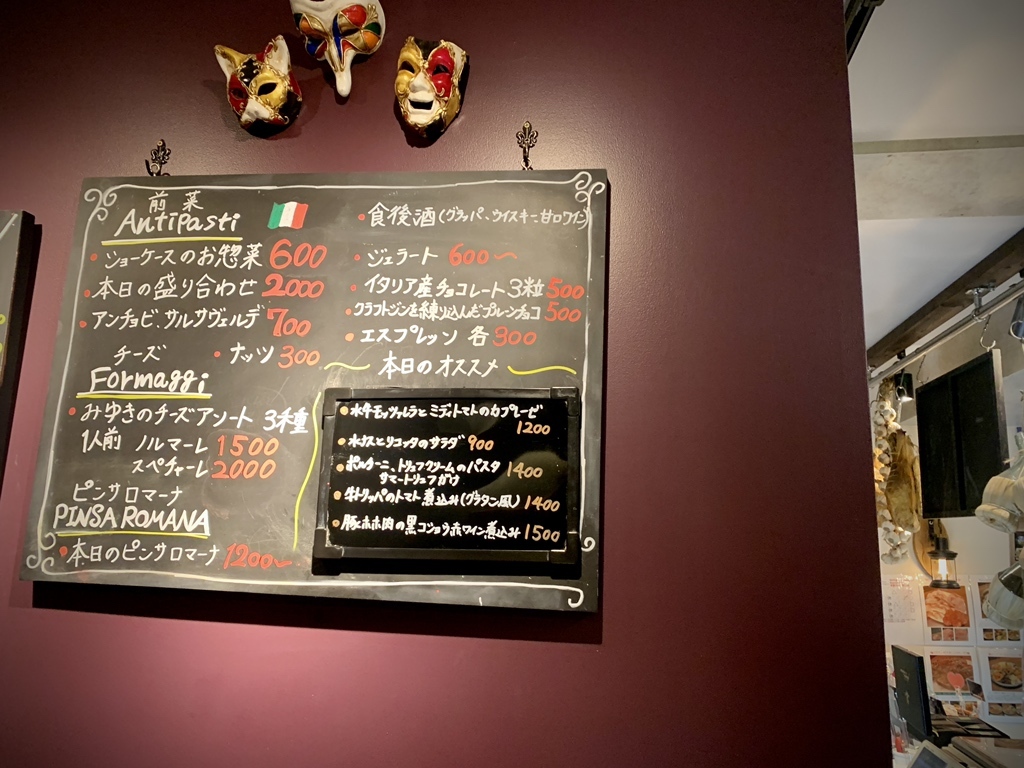 前菜
Antipasti
・ショーケースのお惣菜 600
・本日の盛り合わせ 2000
・アンチョビ、サルサヴェルデ 700
・ナッツ 300
チーズ
Formaggi
・みゆきのチーズアソート 3種
1人前 ノルマーレ 1500
スペチャーレ 2000
ピンサロマーナ
PINSA ROMANA
・本日のピンサロマーナ 1200〜
・食後酒(グラッパ、ウイスキー、甘口ワイン)
・ジェラート 600〜
・イタリア産チョコレート 3粒 500
・クラフトジンを練り込んだプルーンチョコ 500
・エスプレッソ 各300
本日のオススメ
・水牛モッツァレラとミディトマトのカプレーゼ
1200
・水ナスとリコッタのサラダ 900
・ポルチーニ、トリュフクリームのパスタ
サマートリュフがけ 1400
・牛トリッパのトマト煮込み(グラタン風) 1400
・豚ホホ肉の黒コショウ赤ワイン煮込み 1500